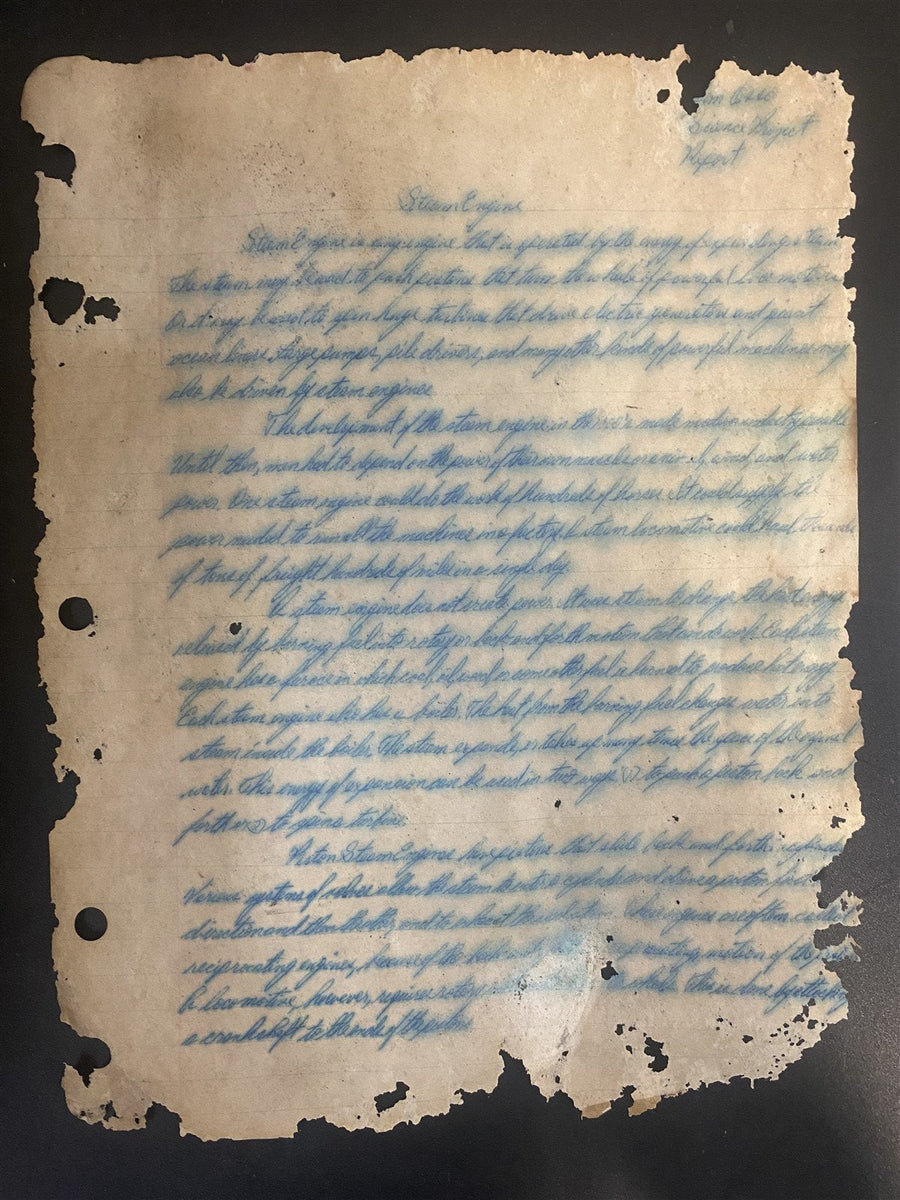 Science Project
Report
Steam Engine
Steam Engine is any engine that is operated by the energy of expanding steam
The steam may be used to push pistons that turn the wheels of powerful locomotives
Or it may be used to spin huge turbines that drive electric generators and giant
ocean liners. Large pumps, pile drivers, and many other kinds of powerful machines may
also be driven by steam engines.
The development of the steam engine in the made modern industry possible
Until then, men had to depend on the power of their own muscles or animal, wind, and water
power. One steam engine could do the work of hundreds of horses. It could supply the
power needed to run all the machines in a factory. A steam locomotive could haul thousands
of tons of freight hundreds of miles in a single day.
A steam engine does not create power. It uses steam to change the heat energy
released by burning fuel into rotary or back and forth motion that can do work. Each steam
engine has a furnace in which coal, oil, wood or some other fuel is burned to produce heat energy
Each steam engine also has a boiler. The heat from the burning fuel changes water into
steam inside the boiler. The steam expands, or takes up many times the space of the original
water. This energy of expansion can be used in two ways (1) to push a piston back and
forth or (2) to spin a turbine.
Piston Steam Engines have pistons that slide back and forth in cylinders
Various systems of valves allow the steam to enter a cylinder and drive a piston first
direction and then the other, and to exhaust the These engines are often called
reciprocating engines, because of the back and motion of the
A locomotive, however, requires rotary wheels. This is done by attaching
a crankshaft to the ends of the pistons